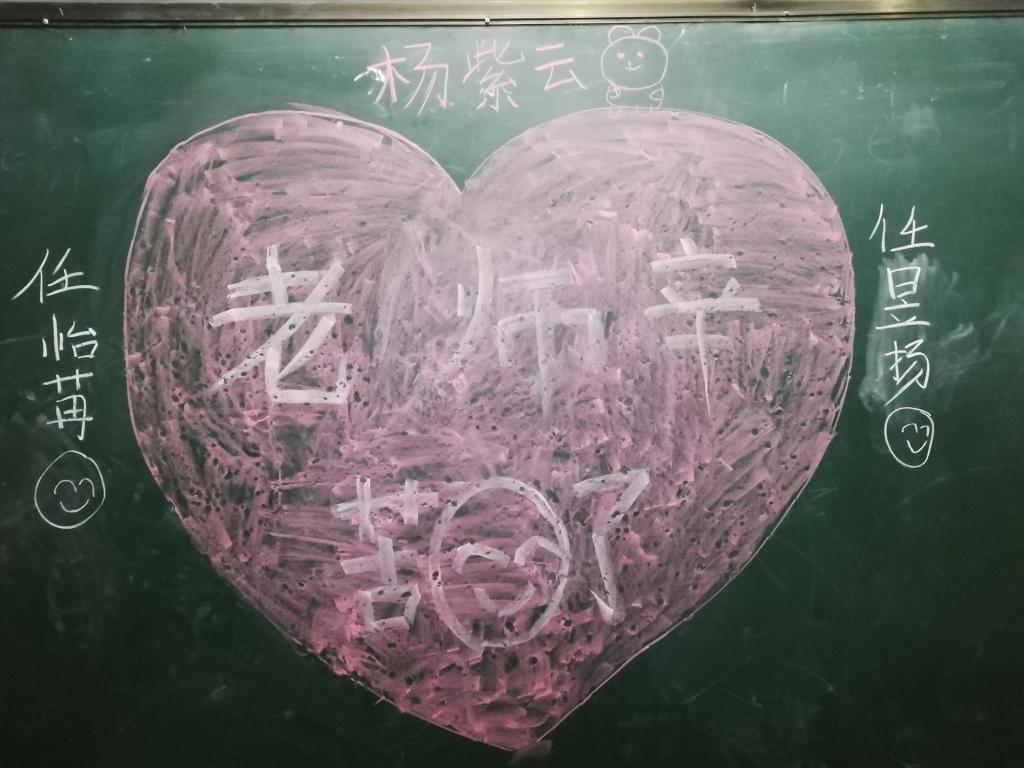 杨紫云
老师辛
苦了
任怡苒
任昱扬